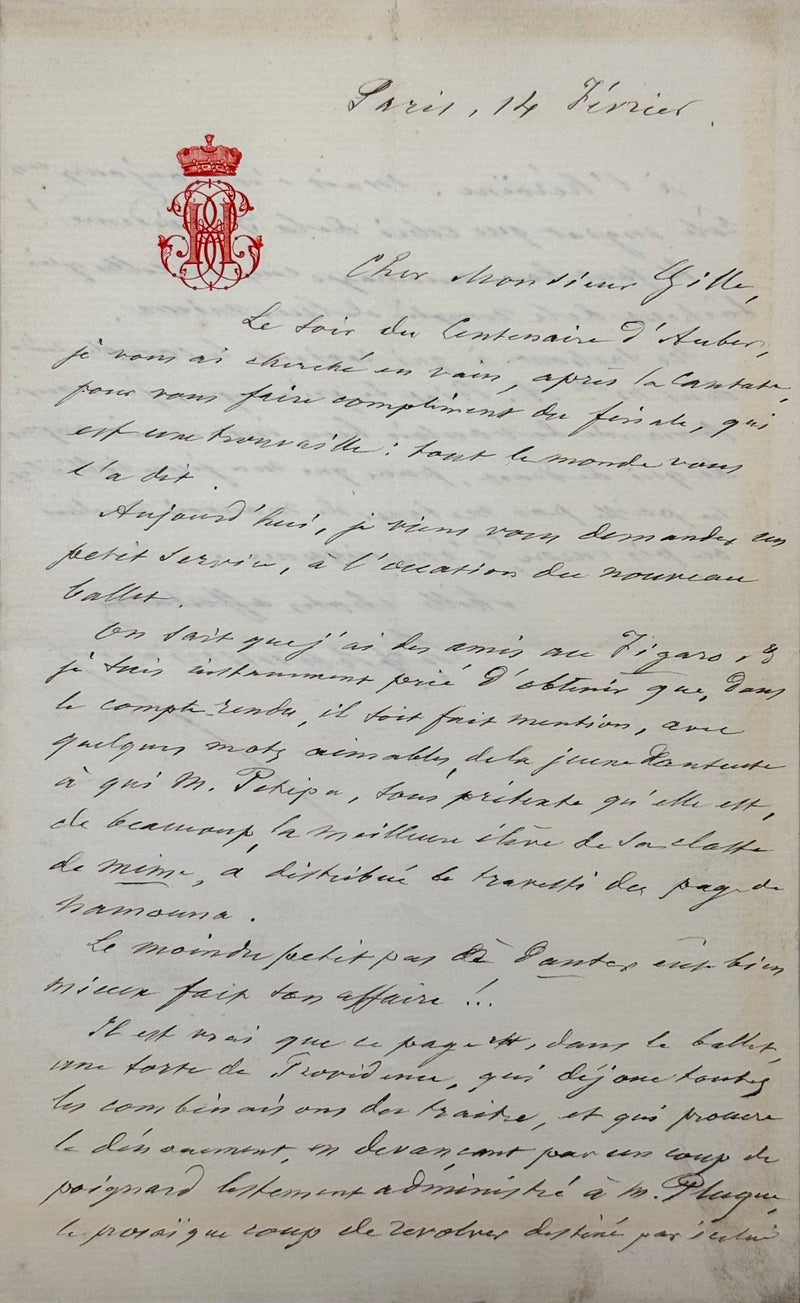 Paris, 14 Février.
Cher Monsieur Gille,
Le soir du Centenaire d'Auber,
je vous ai cherché en vain, après la Cantate,
pour vous faire compliment du finale, qui
est une trouvaille : tout le monde vous
l'a dit.
Aujourd'hui, je viens vous demander un
petit service, à l'occasion du nouveau
ballet.
On sait que j'ai des amis au Figaro, &
je suis instamment prié d'obtenir que, dans
le compte-rendu, il soit fait mention, avec
quelques mots aimables, de la jeune danseuse
à qui M. Petipa, sous prétexte qu'elle est,
de beaucoup, la meilleure élève de sa classe
de mime, a distribué le travesti du page de
Namouna.
Le moindre petit pas à danser eût bien
mieux fait son affaire !..
Il est vrai que ce page est, dans le ballet,
une sorte de Providence, qui déjoue toutes
les combinaisons du traître, et qui procure
le dénouement, en devançant par un coup de
poignard lestement administré à M. Pluque,
le prosaïque coup de revolver destiné par icelui